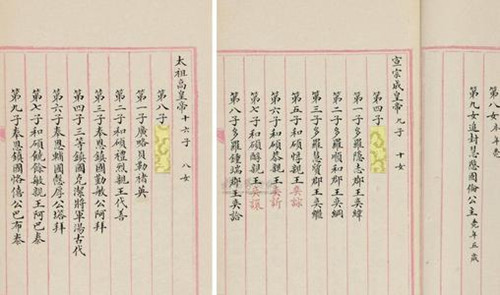 太祖高皇帝 十六子 八女
第八子
第一子廣略貝勒褚英
第二子和碩禮烈親王代善
第三子奉恩鎮國勤敏公阿拜
第四子三等鎮國克潔將軍湯古代
第六子奉恩輔國慤厚公塔拜
第七子和碩饒餘敏親王阿巴泰
第九子奉恩鎮國恪僖公巴布泰
第八女未年
第九女追封慧愍固倫公主 年五歲
宣宗成皇帝 九子 十女
第四子
第一子多羅隱志郡王奕緯
第二子多羅順和郡王奕綱
第三子多羅慧質郡王奕繼
第五子和碩惇親王奕誴
第六子和碩恭親王奕訢
第七子和碩醇親王奕
第八子多羅鍾端郡王奕詥